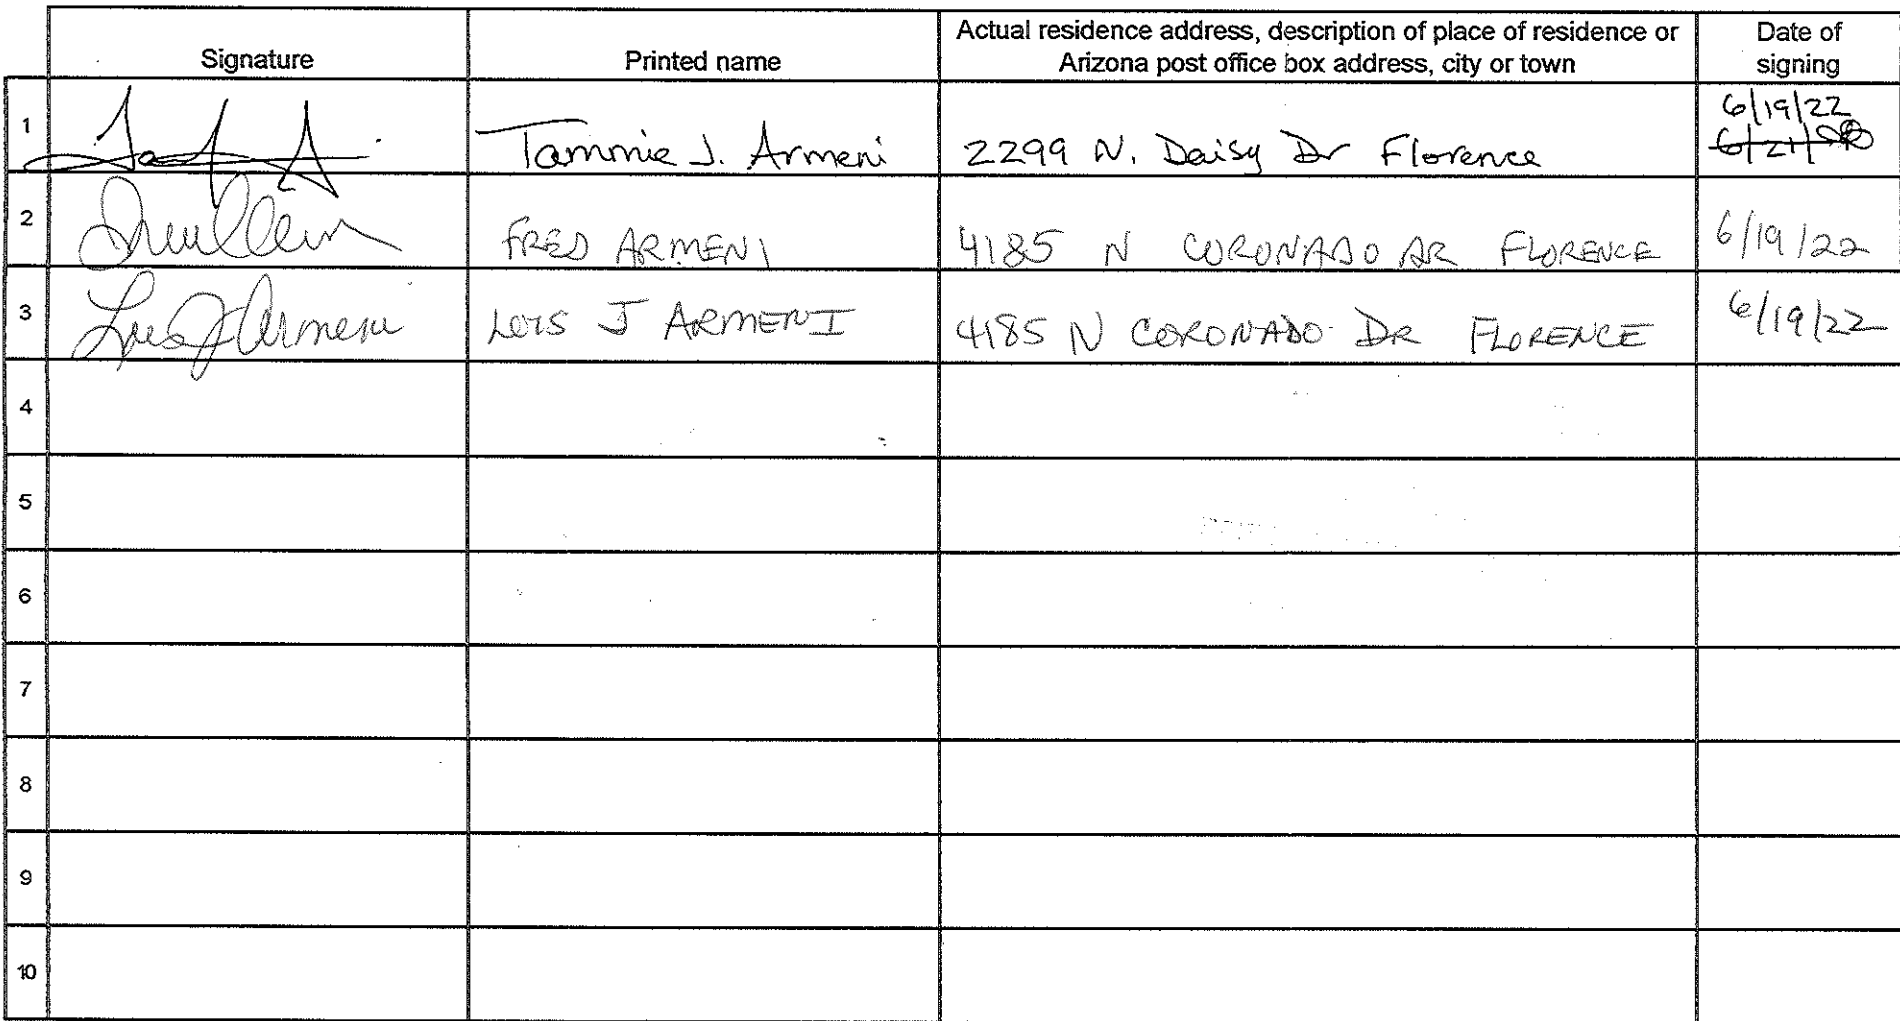 Signature Printed name Actual residence address, description of place of residence or Arizona post office box address, city or town Date of signing
1 Tammie J. Armeni 2299 N. Daisy Dr Florence 6/19/22
6/21/
2 FRED ARMENI 4185 N CORONADO DR FLORENCE 6/19/22
3 Lois J Armeni LOIS J ARMENI 4185 N CORONADO DR FLORENCE 6/19/22
4
5
6
7
8
9
10